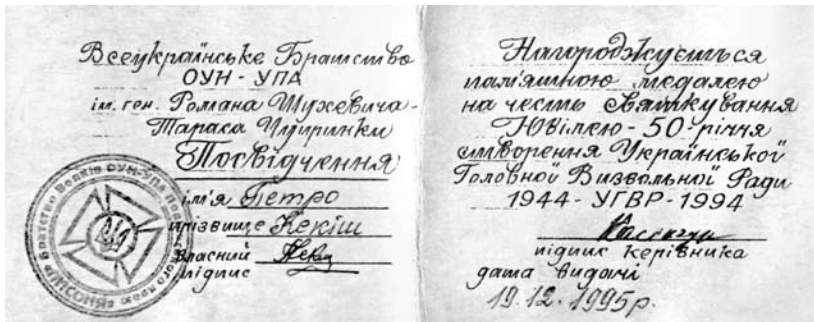 Всеукраїнське Братство
ОУН - УПА
ім. ген. Романа Шухевича -
Тараса Чупринки
Посвідчення
ім'я Петро
прізвище Кекіш
власний
підпис
Братство Вояків ОУН-УПА
"ЛИСОНЯ"
Нагороджується
пам'ятною медалею
на честь святкування
Ювілею - 50 - річчя
створення Української
Головної Визвольної Ради
1944 - УГВР - 1994
підпис керівника
дата видачі
19.12.1995р.